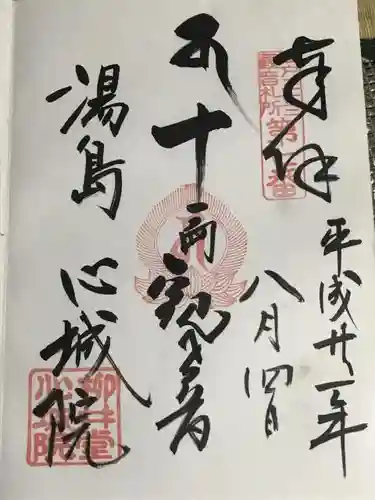 奉拝
江戸三十三
観音札所第七番
平成廿一年
八月四日
十一面観音
湯島
心城院
柳井堂
心城院